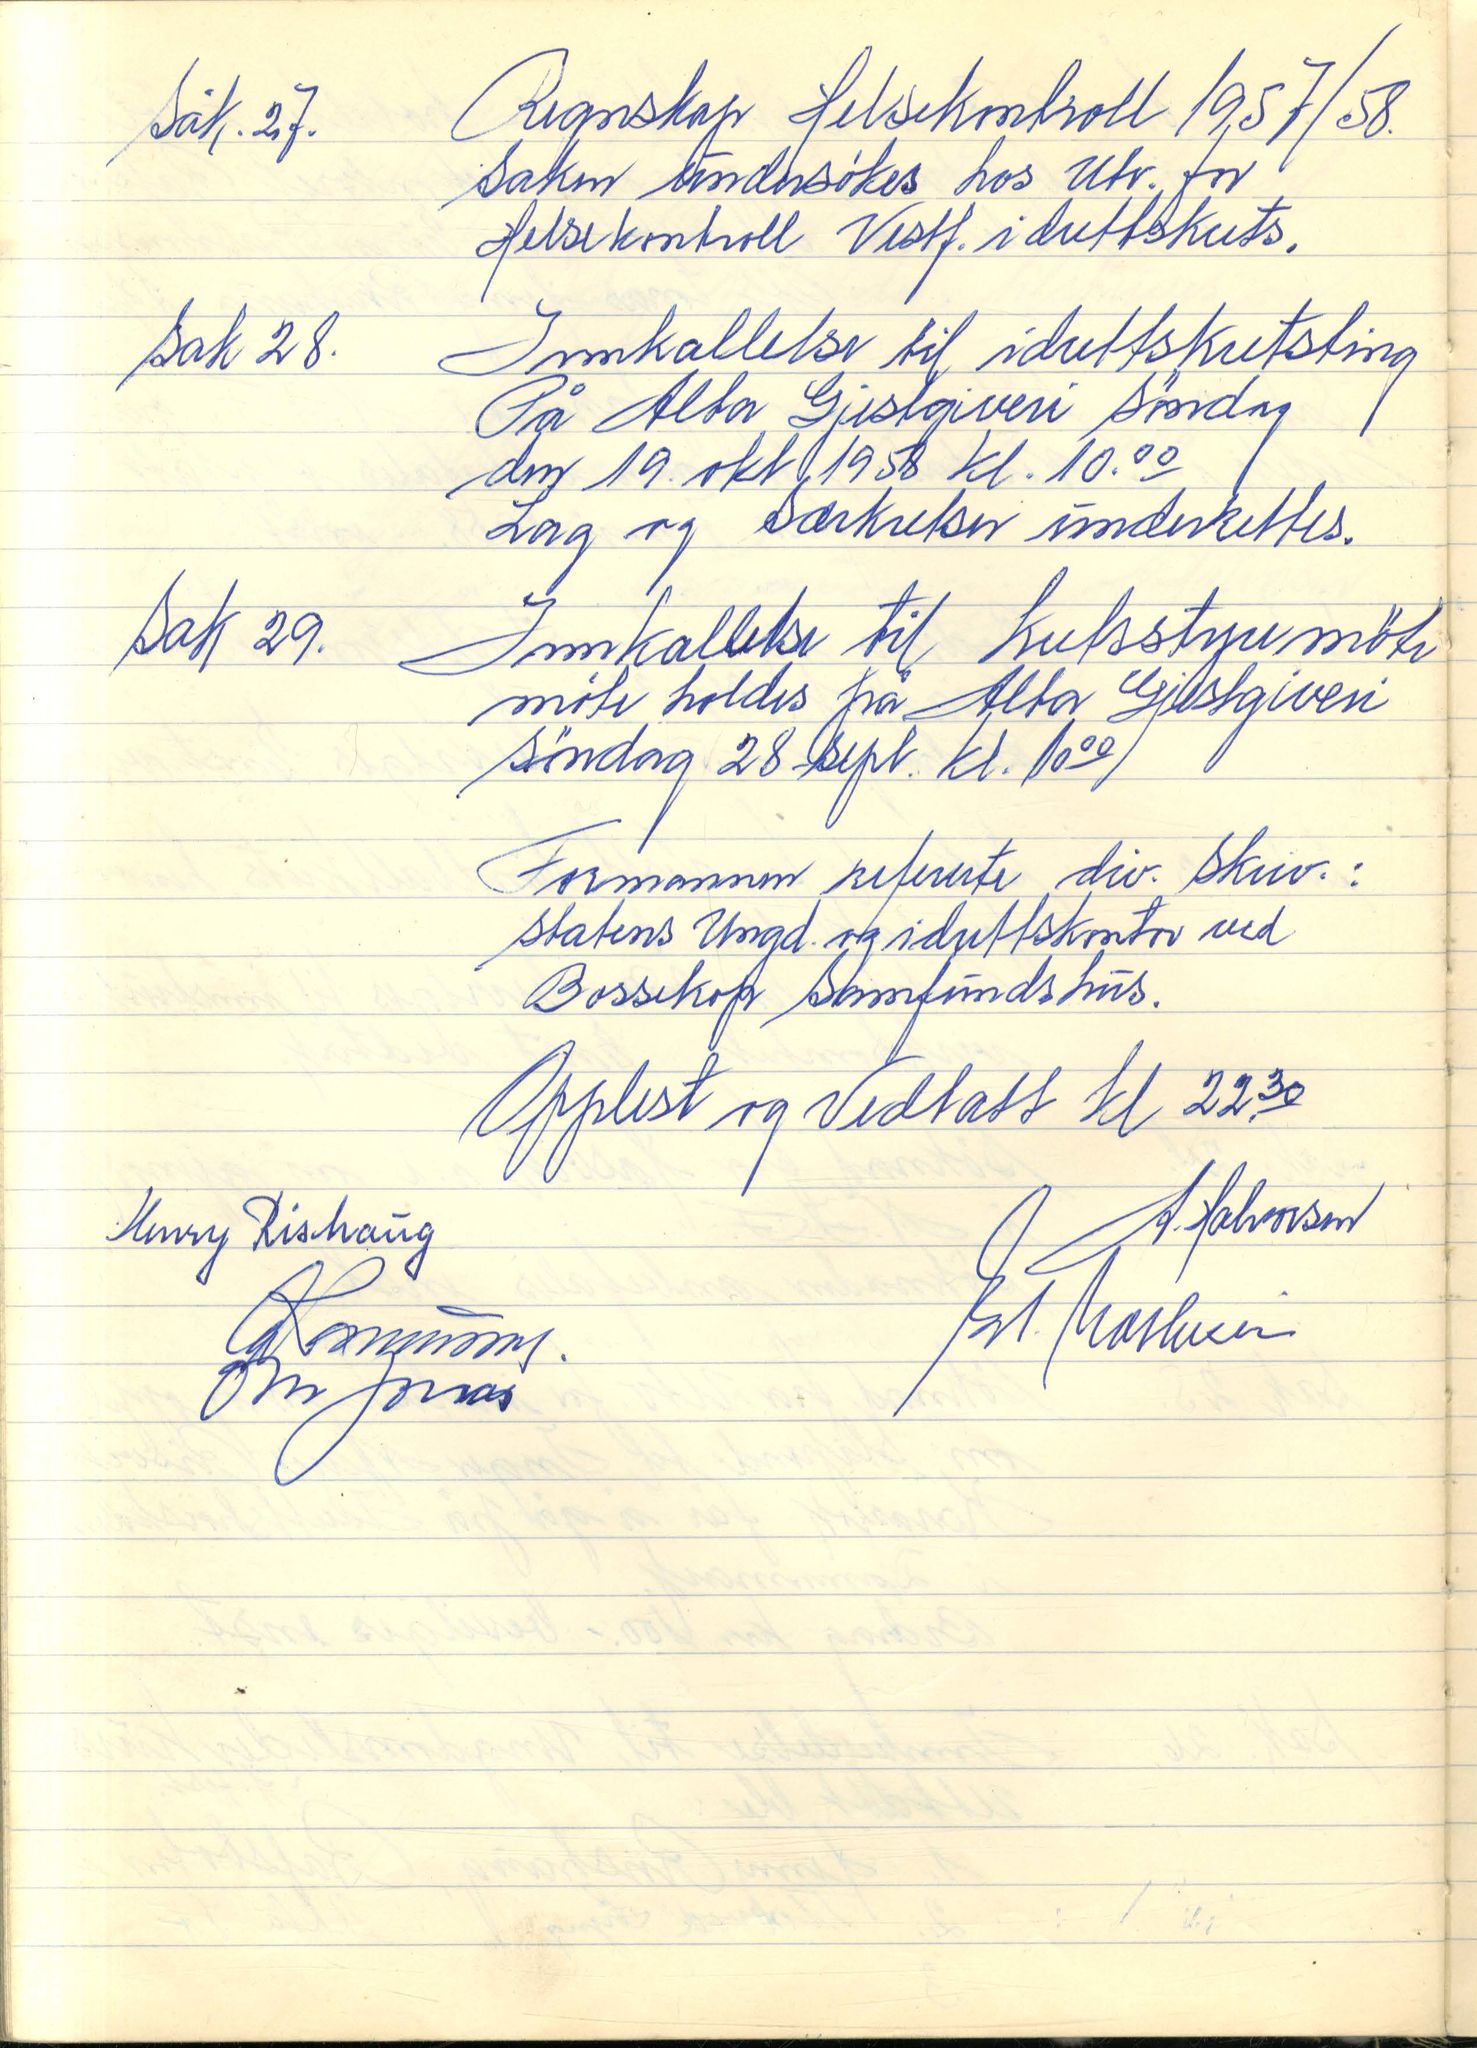 Sak. 27. Regnskap Helsekontroll 1957/58.
Saken undersökes hos Utv. for
Helsekontroll Vestf. idrettskrets.
Sak 28. Innkallelse til idrettskretsting
På Alta Gjestgiveri Söndag
den 19. okt 1958 kl. 10.00
Lag og Særkretser underrettes.
Sak 29. Innkallelse til kretsstyremöte
möte holdes på Alta Gjestgiveri
Söndag 28 sept. kl. 10.00
Formannen refererte div. skriv.:
Statens Ungd. og idrettskontor ved
Bossekop Samfundshus.
Opplest og Vedtatt kl 22.30
Henry Rishaug
A. Halvorsen